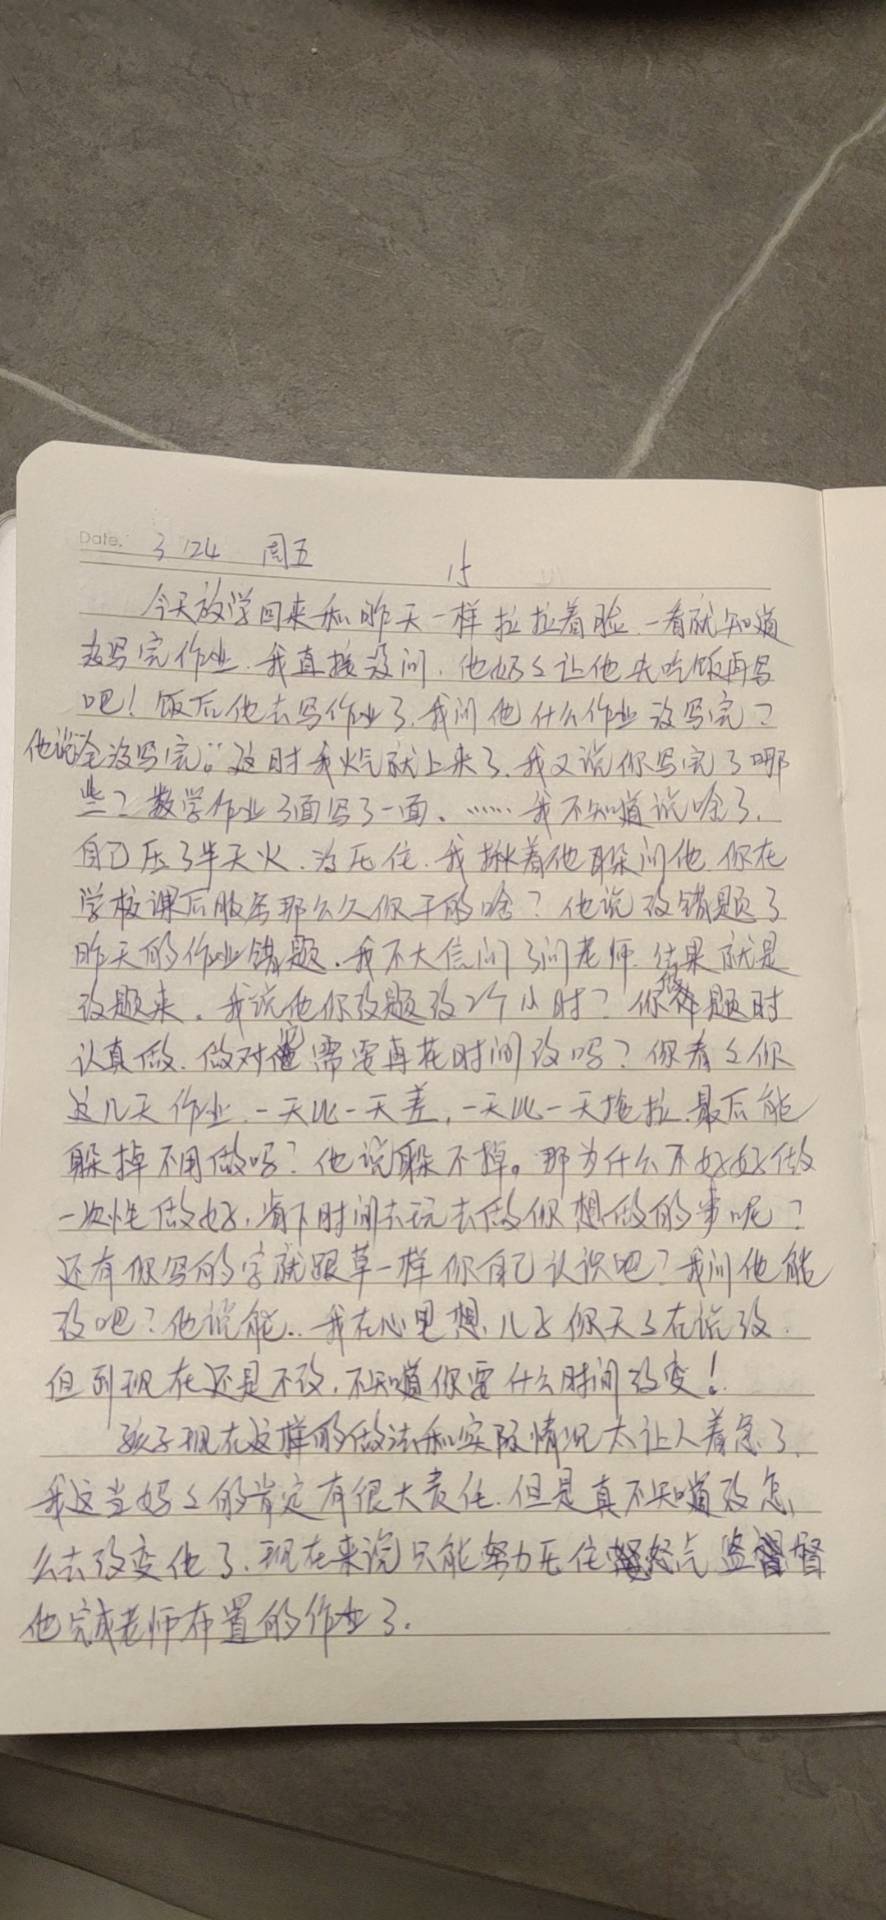 Date. 3 / 24 周五
15
今天放学回来和昨天一样拉拉着脸.一看就知道
没写完作业.我直接没问.他妈妈让他先吃饭再写
吧!饭后他去写作业了.我问他什么作业没写完?
他说全没写完.这时我火气就上来了.我又说你写完了哪
些?数学作业3面写了一面。……我不知道说啥了.
自己压了半天火.没压住.我揪着他耳朵问他.你在
学校课后服务那么久你干的啥?他说改错题了
昨天的作业错题.我不大信问了问老师.结果就是
改题来。我说他你改题改2个小时?你做题时
认真做.做对还需要再花时间改吗?你看看你
这几天作业.一天比一天差,一天比一天拖拉.最后能
躲掉不用做吗?他说躲不掉。那为什么不好好做
一次性做好,省下时间去玩去做你想做的事呢?
还有你写的字就跟草一样你自己认识吧?我问他能
改吧?他说能..我在心里想.儿子你天天在说改.
但到现在还是不改.不知道你要什么时间改变!
孩子现在这样的做法和实际情况太让人着急了.
我这当妈妈的肯定有很大责任.但是真不知道改怎
么去改变他了.现在来说只能努力压住怒气监督
他完成老师布置的作业了.